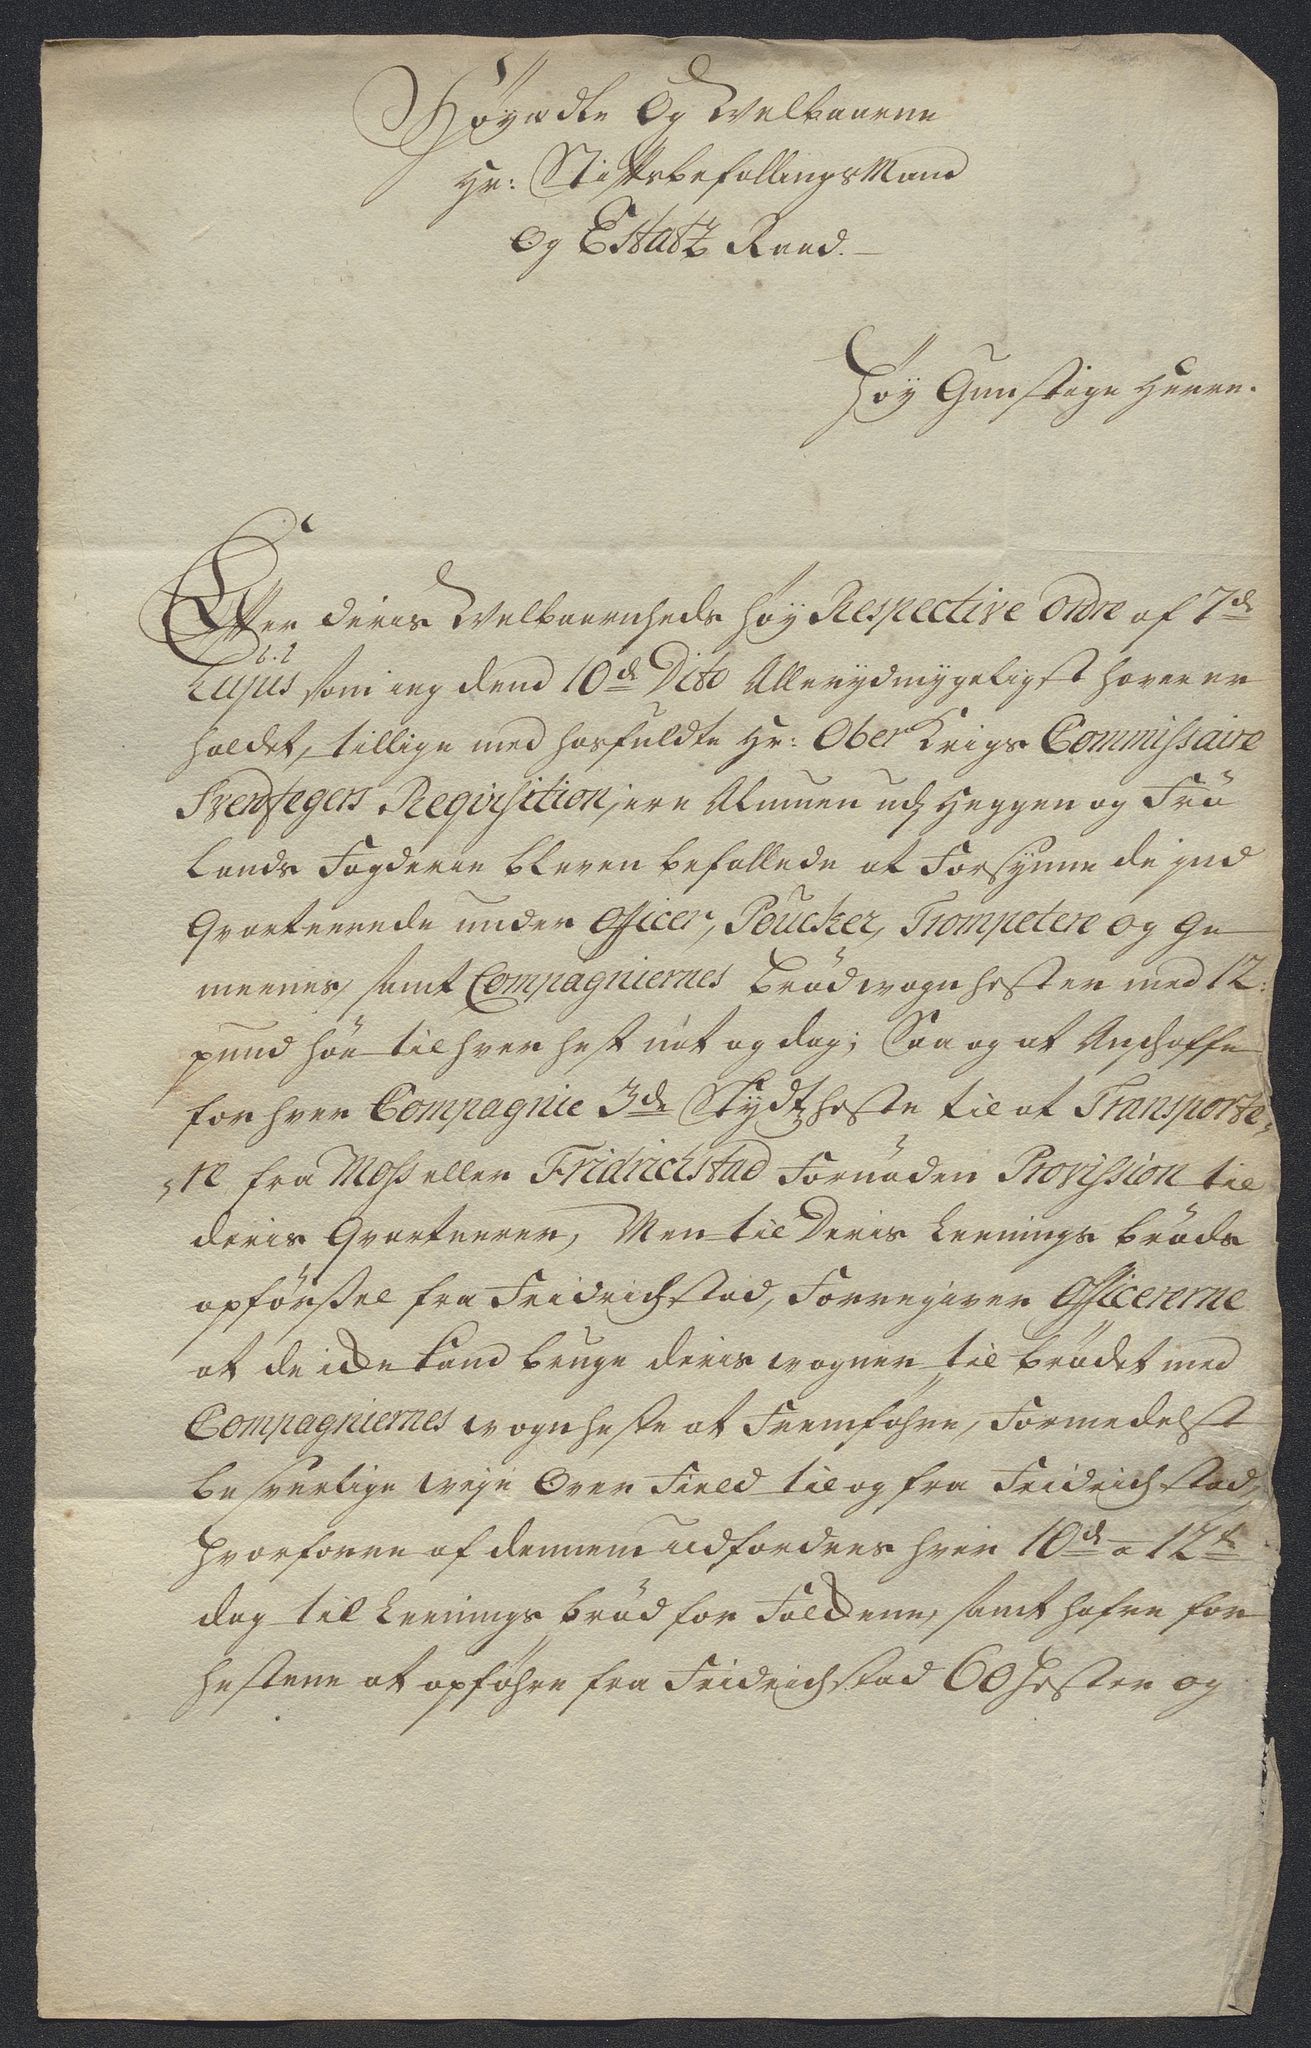 Høyædle Og Welbaarne
Hr: StiftsbefallingsMand
Og Estatz Raad.
Høy Gunstige Herre.
Efter deris Welbaarnheds høy Respective Ordre af 7de
Hujus som ieg dend 10de Dito Allerydmygeligst haver er
holdet, tillige med hosfuldte Hr: Ober Krigs Commissaire
Svenfegers Reqvisition, ere Almuen udj Heggen og Frø
lands Fogderie bleven befallede at Forsynne de ind
Qvarteerede under Officer, Poucker, Trompetere og Ge
meenes, samt Compagniernes brødwogn hester med 12:
pund høe til hver hest nat og dag; Saa og at Anschaffe
for hver Compagnie 3de Skydtz heste til at Transporte„
„re fra Moss eller Fridrichstad Fornøden Provission til
deris Qvarteerer, Men til Deris Leenings brøds
opførssel fra Fridrichstad, Forregiver Officererne
at de icke kand bruge deris wogner til brødet med
Compagniernes wognheste at Fremføhre, Formedelst
besverlige weje Over Field til og fra Fridrichstad,
hvorforre af dennem udfordres hver 10de a 12te
dag til Leenings brød for Folckene, samt hafre for
hestene at opføhre fra Fridrichstad 60 hester og